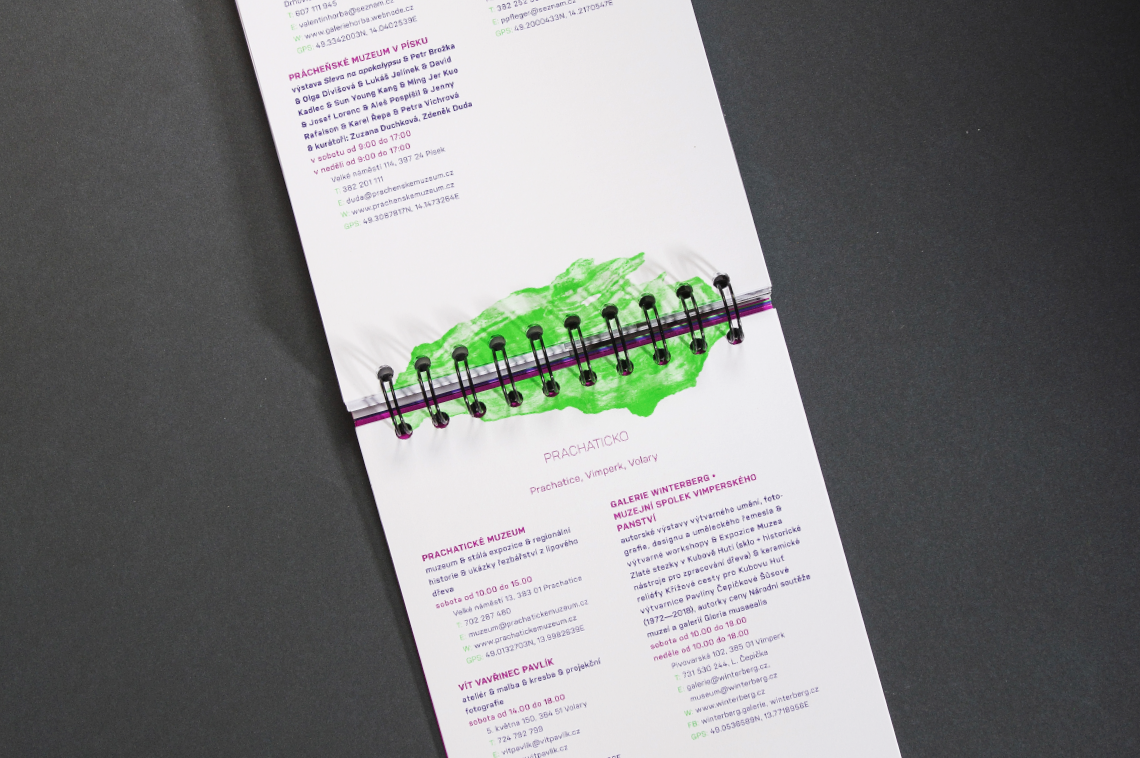 T: 607 111 945
E: valentinhorba@seznam.cz
W: www.galeriehorba.webnode.cz
GPS: 49.3342003N, 14.0402539E
PRÁCHEŇSKÉ MUZEUM V PÍSKU
výstava Sleva na apokalypsu & Petr Brožka
& Olga Divišová & Lukáš Jelínek & David
Kadlec & Sun Young Kang & Ming Jer Kuo
& Josef Lorenc & Aleš Pospíšil & Jenny
Rafalson & Karel Řepa & Petra Vichrová
& kurátoři: Zuzana Duchková, Zdeněk Duda
v sobotu od 9:00 do 17:00
v neděli od 9:00 do 17:00
Velké náměstí 114, 397 24 Písek
T: 382 201 111
E: duda@prachenskemuzeum.cz
W: www.prachenskemuzeum.cz
GPS: 49.3087817N, 14.1473264E
E: ppfleger@seznam.cz
GPS: 49.2000433N, 14.2170547E
PRACHATICKO
Prachatice, Vimperk, Volary
PRACHATICKÉ MUZEUM
muzeum & stálá expozice & regionální
historie & ukázky řezbářství z lipového
dřeva
sobota od 10.00 do 15.00
Velké náměstí 13, 383 01 Prachatice
T: 702 287 460
E: muzeum@prachatickemuzeum.cz
W: www.prachatickemuzeum.cz
GPS: 49.0132703N, 13.9982639E
VÍT VAVŘINEC PAVLÍK
ateliér & malba & kresba & projekční
fotografie
sobota od 14.00 do 18.00
5. května 150, 384 51 Volary
T: 724 792 799
E: vitpavlik@vitpavlik.cz
GALERIE WINTERBERG +
MUZEJNÍ SPOLEK VIMPERSKÉHO
PANSTVÍ
autorské výstavy výtvarného umění, foto-
grafie, designu a uměleckého řemesla &
výtvarné workshopy & Expozice Muzea
Zlaté stezky v Kubově Huti (sklo + historické
nástroje pro zpracování dřeva) & keramické
reliéfy Křížové cesty pro Kubovu Huť
výtvarnice Pavlíny Čepičkové Šůsové
(1972—2018), autorky ceny Národní soutěže
muzeí a galerií Gloria musaealis
sobota od 10.00 do 18.00
neděle od 10.00 do 18.00
Pivovarská 102, 385 01 Vimperk
T: 731 530 244, L. Čepička
E: galerie@winterberg.cz,
museum@winterberg.cz
W: www.winterberg.cz
FB: winterberg.galerie, winterberg.cz
GPS: 49.0536589N, 13.7718956E